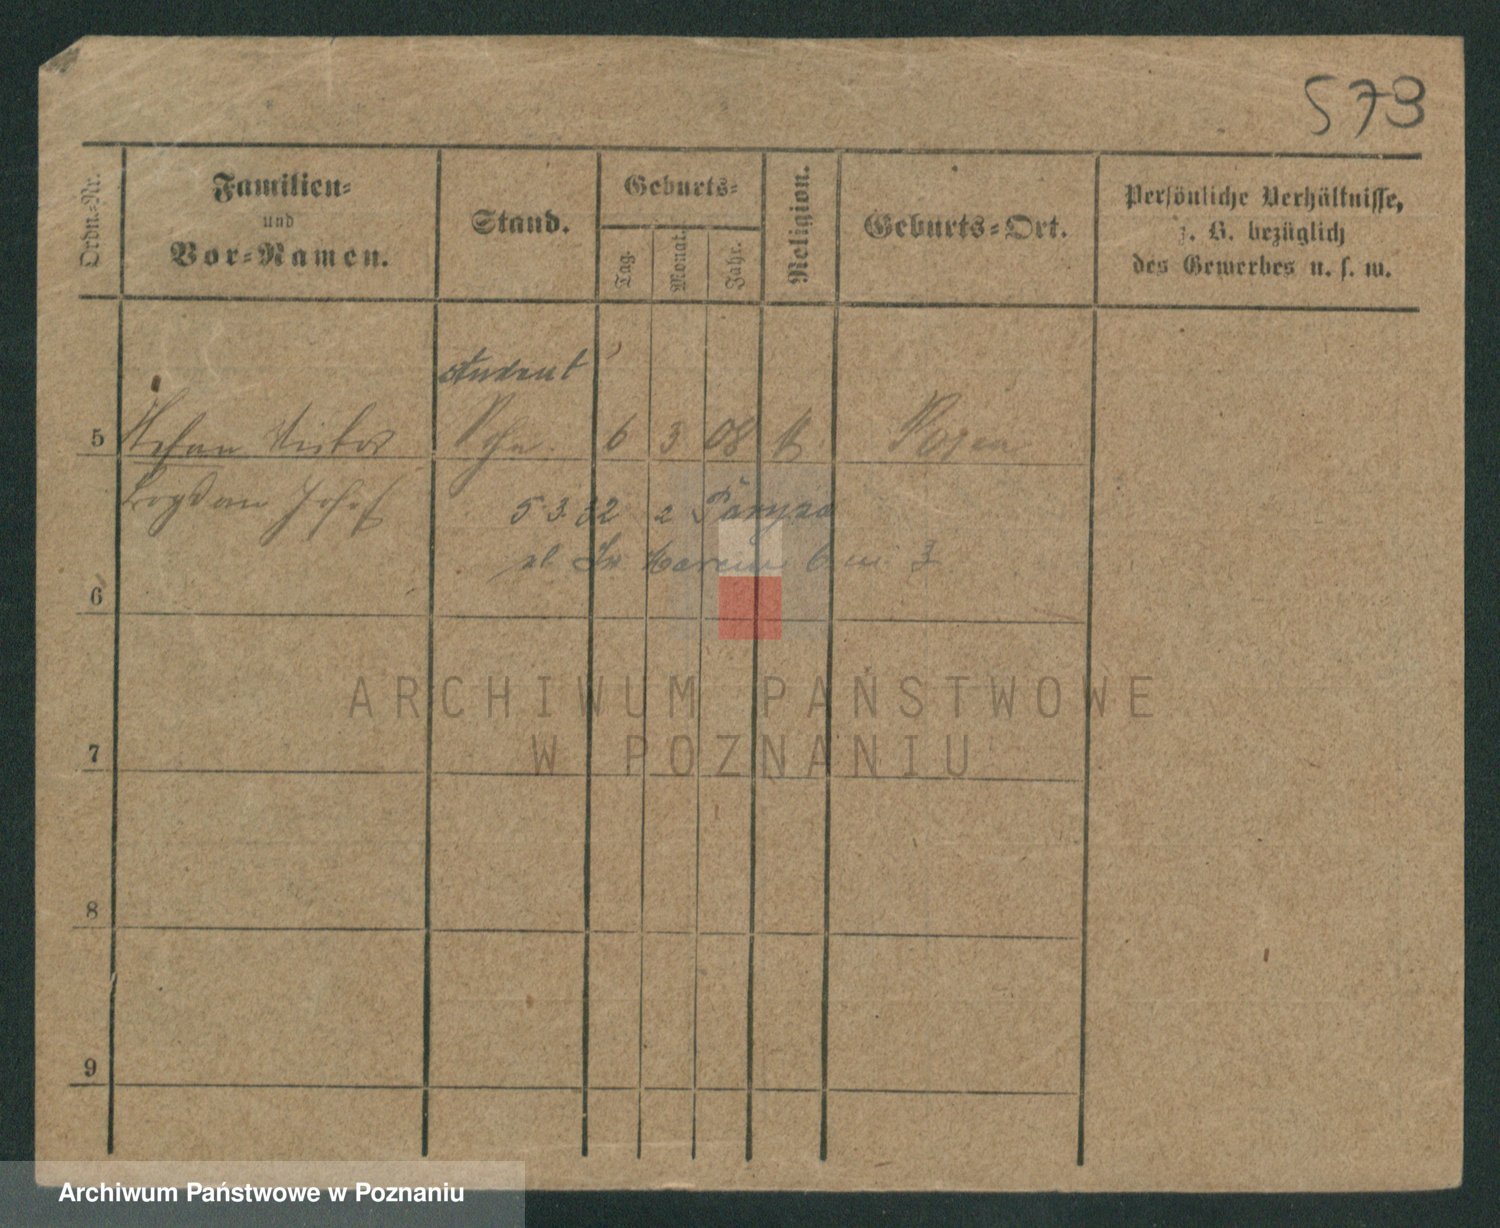 573
Ordn.-Nr.
Familien-
und
Vor-Namen.
Stand.
Geburts-
Tag.
Monat.
Jahr.
Religion.
Geburts-Ort.
Persönliche Verhältnisse,
z. B. bezüglich
des Gewerbes u. s. w.
student
5 Stefan Victor Sohn 6 3 08 k. Posen
Bogdan Josef
5 3. 32 z Paryża
ul Św Marcin 6 m. 3
6
7
8
9
ARCHIWUM PAŃSTWOWE
W POZNANIU
Archiwum Państwowe w Poznaniu